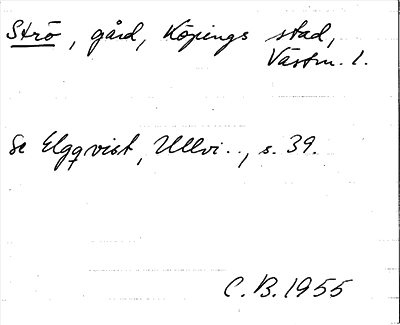 Strö, gård, Köpings stad,
Västm. l.
Se Elgqvist, Ullvi.., s. 39.
C.B. 1955